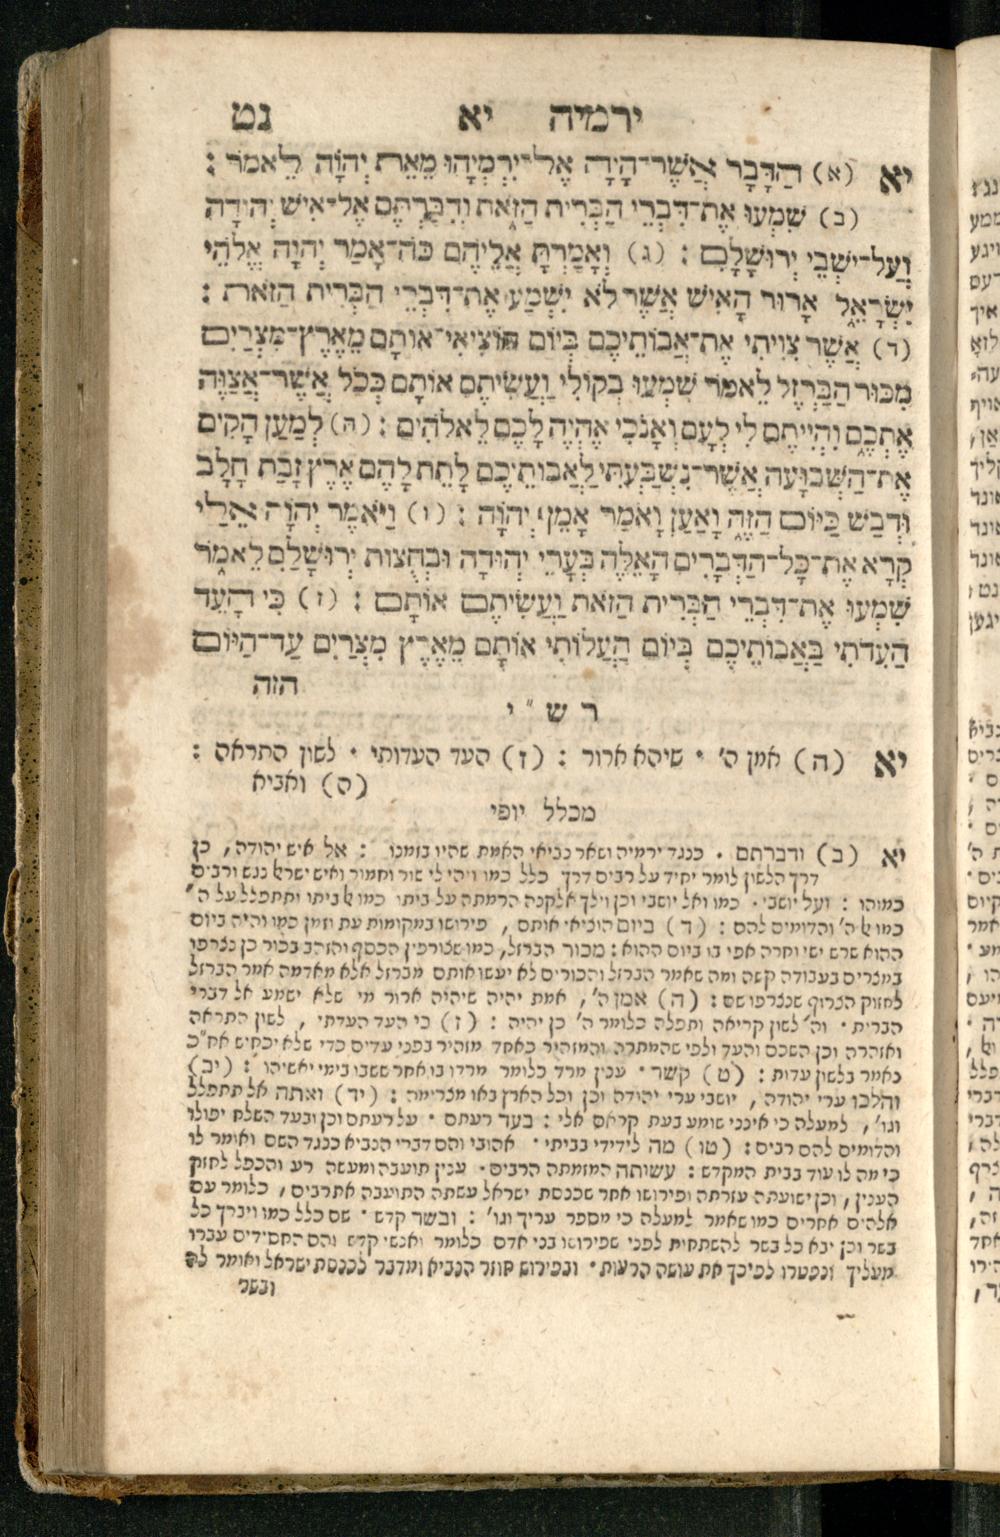 ירמיה יא נט
יא (א) הַדָּבָר אֲשֶׁר־הָיָה אֶל־יִרְמְיָהוּ מֵאֵת יְהוָֹה לֵאמֹר :
(ב) שִׁמְעוּ אֶת־דִּבְרֵי הַבְּרִית הַזֹּאת וְדִבַּרְתֶּם אֶל־אִישׁ יְהוּדָה
וְעַל־יֹשְׁבֵי יְרוּשָׁלִָם : (ג) וְאָמַרְתָּ אֲלֵיהֶם כֹּה־אָמַר יְהוָה אֱלֹהֵי
יִשְׂרָאֵל אָרוּר הָאִישׁ אֲשֶׁר לֹא יִשְׁמַע אֶת־דִּבְרֵי הַבְּרִית הַזֹּאת :
(ד) אֲשֶׁר צִוִּיתִי אֶת־אֲבוֹתֵיכֶם בְּיוֹם הוֹצִיאִי־אוֹתָם מֵאֶרֶץ־מִצְרַיִם
מִכּוּר הַבַּרְזֶל לֵאמֹר שִׁמְעוּ בְקוֹלִי וַעֲשִׂיתֶם אוֹתָם כְּכֹל אֲשֶׁר־אֲצַוֶּה
אֶתְכֶם וִהְיִיתֶם לִי לְעָם וְאָנֹכִי אֶהְיֶה לָכֶם לֵאלֹהִים : (ה) לְמַעַן הָקִים
אֶת־הַשְּׁבוּעָה אֲשֶׁר־נִשְׁבַּעְתִּי לַאֲבוֹתֵיכֶם לָתֵת לָהֶם אֶרֶץ זָבַת חָלָב
וּדְבַשׁ כַּיּוֹם הַזֶּה וָאַעַן וָאֹמַר אָמֵן יְהוָֹה : (ו) וַיֹּאמֶר יְהוָֹה אֵלַי
קְרָא אֶת־כָּל־הַדְּבָרִים הָאֵלֶּה בְּעָרֵי יְהוּדָה וּבְחֻצוֹת יְרוּשָׁלִַם לֵאמֹר
שִׁמְעוּ אֶת־דִּבְרֵי הַבְּרִית הַזֹּאת וַעֲשִׂיתֶם אוֹתָם : (ז) כִּי הָעֵד
הַעִדֹתִי בַּאֲבוֹתֵיכֶם בְּיוֹם הַעֲלוֹתִי אוֹתָם מֵאֶרֶץ מִצְרַיִם עַד־הַיּוֹם
הזה
ר ש " י
יא (ה) אמן ה' · שיהא ארור : (ז) העד העדותי · לשון התראה :
(ח) ואביא
מכלל יופי
יא (ב) ודברתם · כנגד ירמיה ושאר נביאי האמת שהיו בזמנו : אל איש יהודה, כן
דרך הלשון לומר יחיד על רבים דרך כלל כמו ויהי לי שור וחמור ואיש ישראל נגש ורבים
כמוהו : ועל יושבי · כמו ואל יושבי וכן וילך אלקנה הרמתה על ביתו כמו אל ביתו ותתפלל על ה'
כמו אל ה' והדומים להם : (ד) ביום הוציאי אותם , פירושו במקומות עת וזמן כמו והיה ביום
ההוא שרש ישי וחרה אפי בו ביום ההוא : מכור הברזל, כמו שצורפין הכסף והזהב בכור כן נצרפו
במצרים בעבודה קשה ומה שאמר הברזל והכורים לא יעשו אותם מברזל אלא מאדמה אמר הברזל
לחזוק הצרוף שנצרפו שם : (ה) אמן ה', אמת יהיה שיהיה ארור מי שלא ישמע אל דברי
הברית · וה' לשון קריאה ותפלה כלומר ה' כן יהיה : (ז) כי העד העדתי , לשון התראה
ואזהרה וכן השכם והעד ולפי שהמתרה והמזהיר כאחד מזהיר בפני עדים כדי שלא יכחיש אח"כ
נאמר בלשון עדות : (ט) קשר · ענין מרד כלומר מרדו בו אחר ששבו בימי יאשיהו : (יב)
והלכו ערי יהודה , יושבי ערי יהודה וכן וכל הארץ באו מצרימה : (יד) ואתה אל תתפלל
וגו', למעלה כי אינני שומע בעת קראם אלי : בעד רעתם · על רעתם וכן ובעד השלח יפולו
והדומים להם רבים : (טו) מה לידידי בביתי · אהובי והם דברי הנביא כנגד השם ואומר לו
כי מה לו עוד בבית המקדש : עשותה המזמתה הרבים · ענין תועבה ומעשה רע והכפל לחזק
הענין, וכן ישועתה עזרתה ופירושו אחר שכנסת ישראל עשתה התועבה את רבים , כלומר עם
אלהים אחרים כמו שאמר למעלה כי מספר עריך וגו' : ובשר קדש · שם כלל כמו ויברך כל
בשר וכן יבא כל בשר להשתחות לפני שפירושו בני אדם כלומר ואנשי קדש והם החסידים עברו
מעליך ונפטרו לפיכך את עושה הרעות · ובפירוש חוזר הנביא ומדבר לכנסת ישראל ואומר לה
ובשר